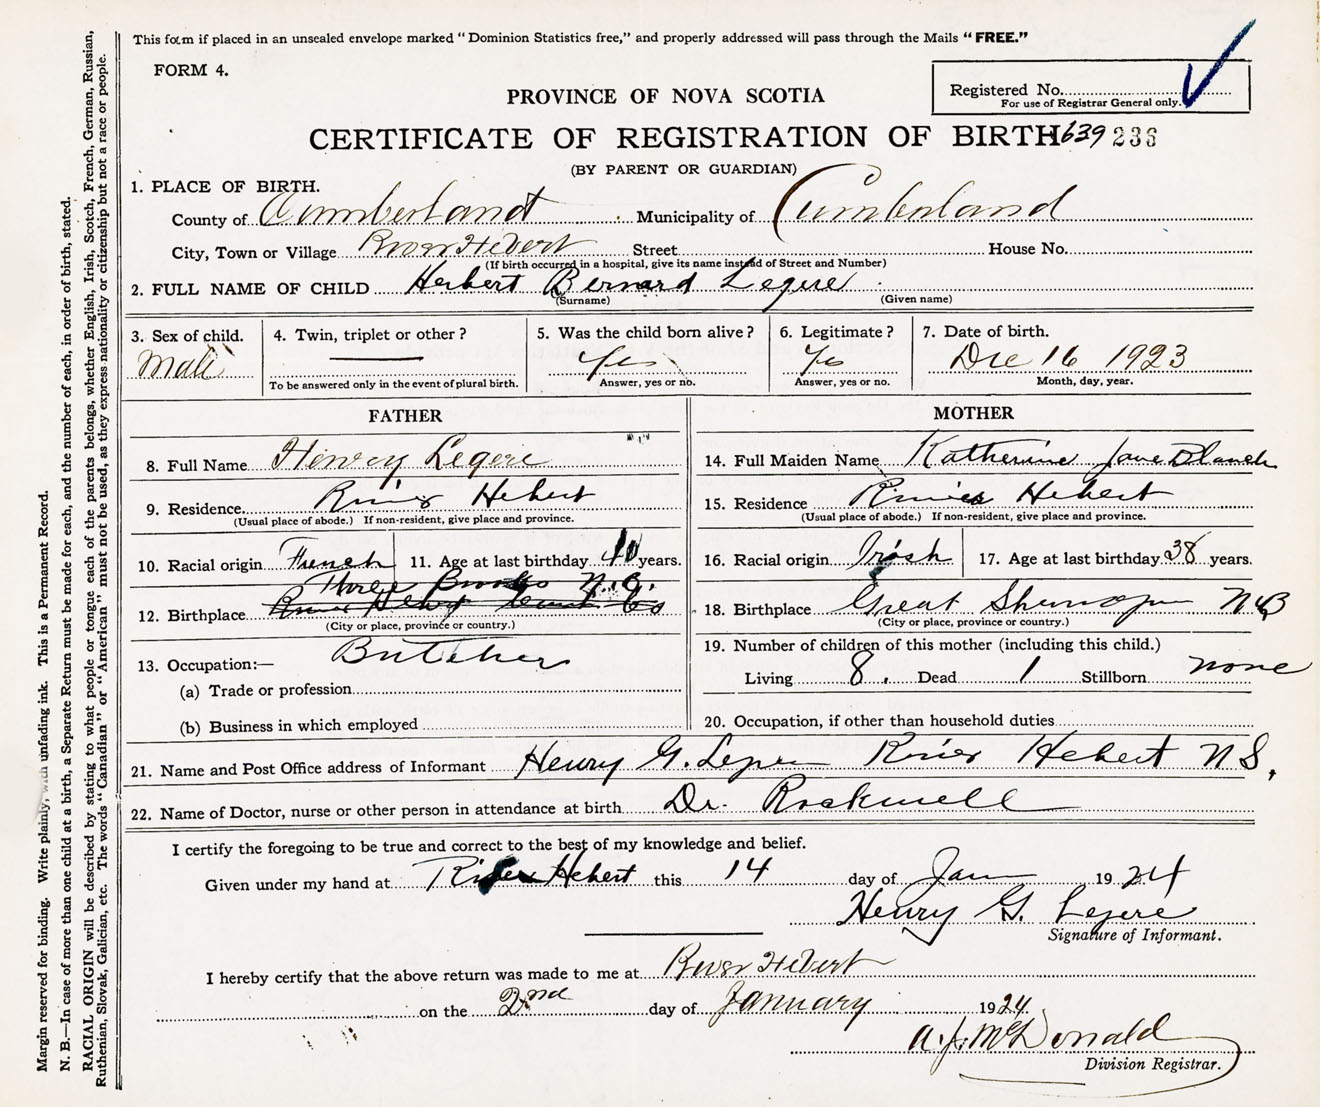 This form if placed in an unsealed envelope marked "Dominion Statistics free," and properly addressed will pass through the Mails "FREE."
FORM 4.
Registered No.
For use of Registrar General only.
PROVINCE OF NOVA SCOTIA
CERTIFICATE OF REGISTRATION OF BIRTH 639 236
(BY PARENT OR GUARDIAN)
1. PLACE OF BIRTH.
County of Cumberland Municipality of Cumberland
City, Town or Village River Hebert Street House No.
(If birth occurred in a hospital, give its name instead of Street and Number)
2. FULL NAME OF CHILD Herbert Bernard Legere
(Surname) (Given name)
3. Sex of child. 4. Twin, triplet or other? 5. Was the child born alive? 6. Legitimate? 7. Date of birth.
Male Yes Yes Dec 16 1923
To be answered only in the event of plural birth. Answer, yes or no. Answer, yes or no. Month, day, year.
FATHER
8. Full Name Henry Legere
9. Residence River Hebert
(Usual place of abode.) If non-resident, give place and province.
10. Racial origin French 11. Age at last birthday 40 years.
Three Brooks N.S.
12. Birthplace River
(City or place, province or country.)
13. Occupation:— Butcher
(a) Trade or profession
(b) Business in which employed
MOTHER
14. Full Maiden Name Katherine Jane
15. Residence River Hebert
(Usual place of abode.) If non-resident, give place and province.
16. Racial origin Irish 17. Age at last birthday 38 years.
18. Birthplace Great NB
(City or place, province or country.)
19. Number of children of this mother (including this child.)
Living 8. Dead 1 Stillborn none
20. Occupation, if other than household duties
21. Name and Post Office address of Informant Henry G. Legere River Hebert N S,
22. Name of Doctor, nurse or other person in attendance at birth Dr. Rockwell
I certify the foregoing to be true and correct to the best of my knowledge and belief.
Given under my hand at River Hebert this 14 day of Jan 1924
Henry G. Legere
Signature of Informant.
I hereby certify that the above return was made to me at River Hebert
on the 2nd day of January 1924.
A. J. McDonald
Division Registrar.
Margin reserved for binding. Write plainly, with unfading ink. This is a Permanent Record.
N. B.—In case of more than one child at a birth, a Separate Return must be made for each, and the number of each, in order of birth, stated.
RACIAL ORIGIN will be described by stating to what people or tongue each of the parents belongs, whether English, Irish, Scotch, French, German, Russian,
Ruthenian, Slovak, Galician, etc. The words "Canadian" or "American" must not be used, as they express nationality or citizenship but not a race or people.